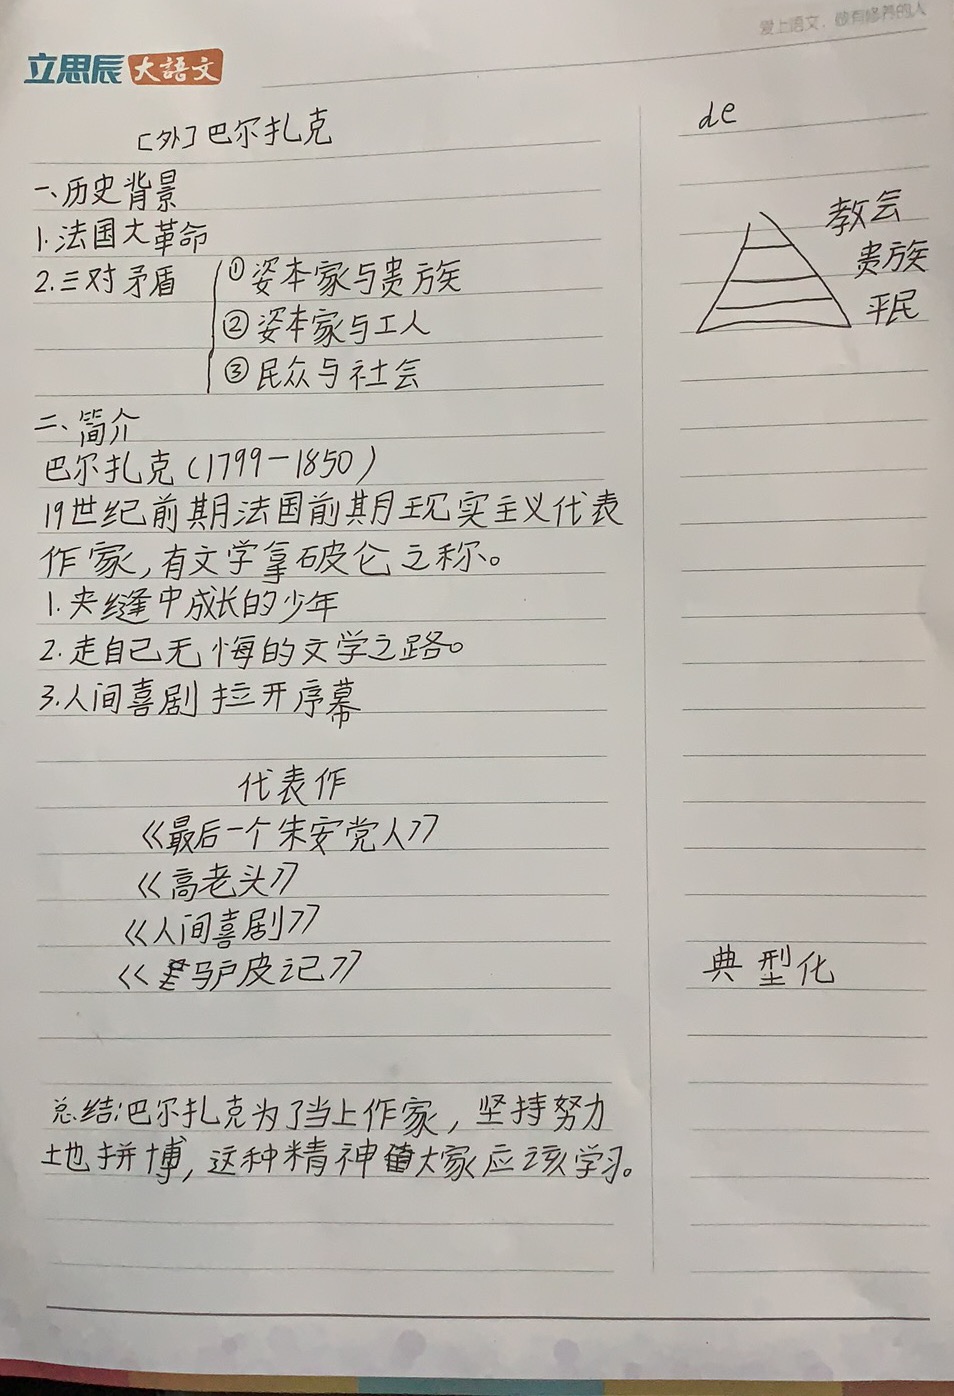 爱上语文，做有修养的人
立思辰大語文
[外]巴尔扎克
一、历史背景
1.法国大革命
2.三对矛盾
①资本家与贵族
②资本家与工人
③民众与社会
二、简介
巴尔扎克(1799-1850)
19世纪前期法国前期现实主义代表
作家,有文学拿破仑之称。
1.夹缝中成长的少年
2.走自己无悔的文学之路。
3.人间喜剧拉开序幕
代表作
《最后一个朱安党人》
《高老头》
《人间喜剧》
《驴皮记》
总结:巴尔扎克为了当上作家,坚持努力
地拼博,这种精神值大家应该学习。
de
教会
贵族
平民
典型化